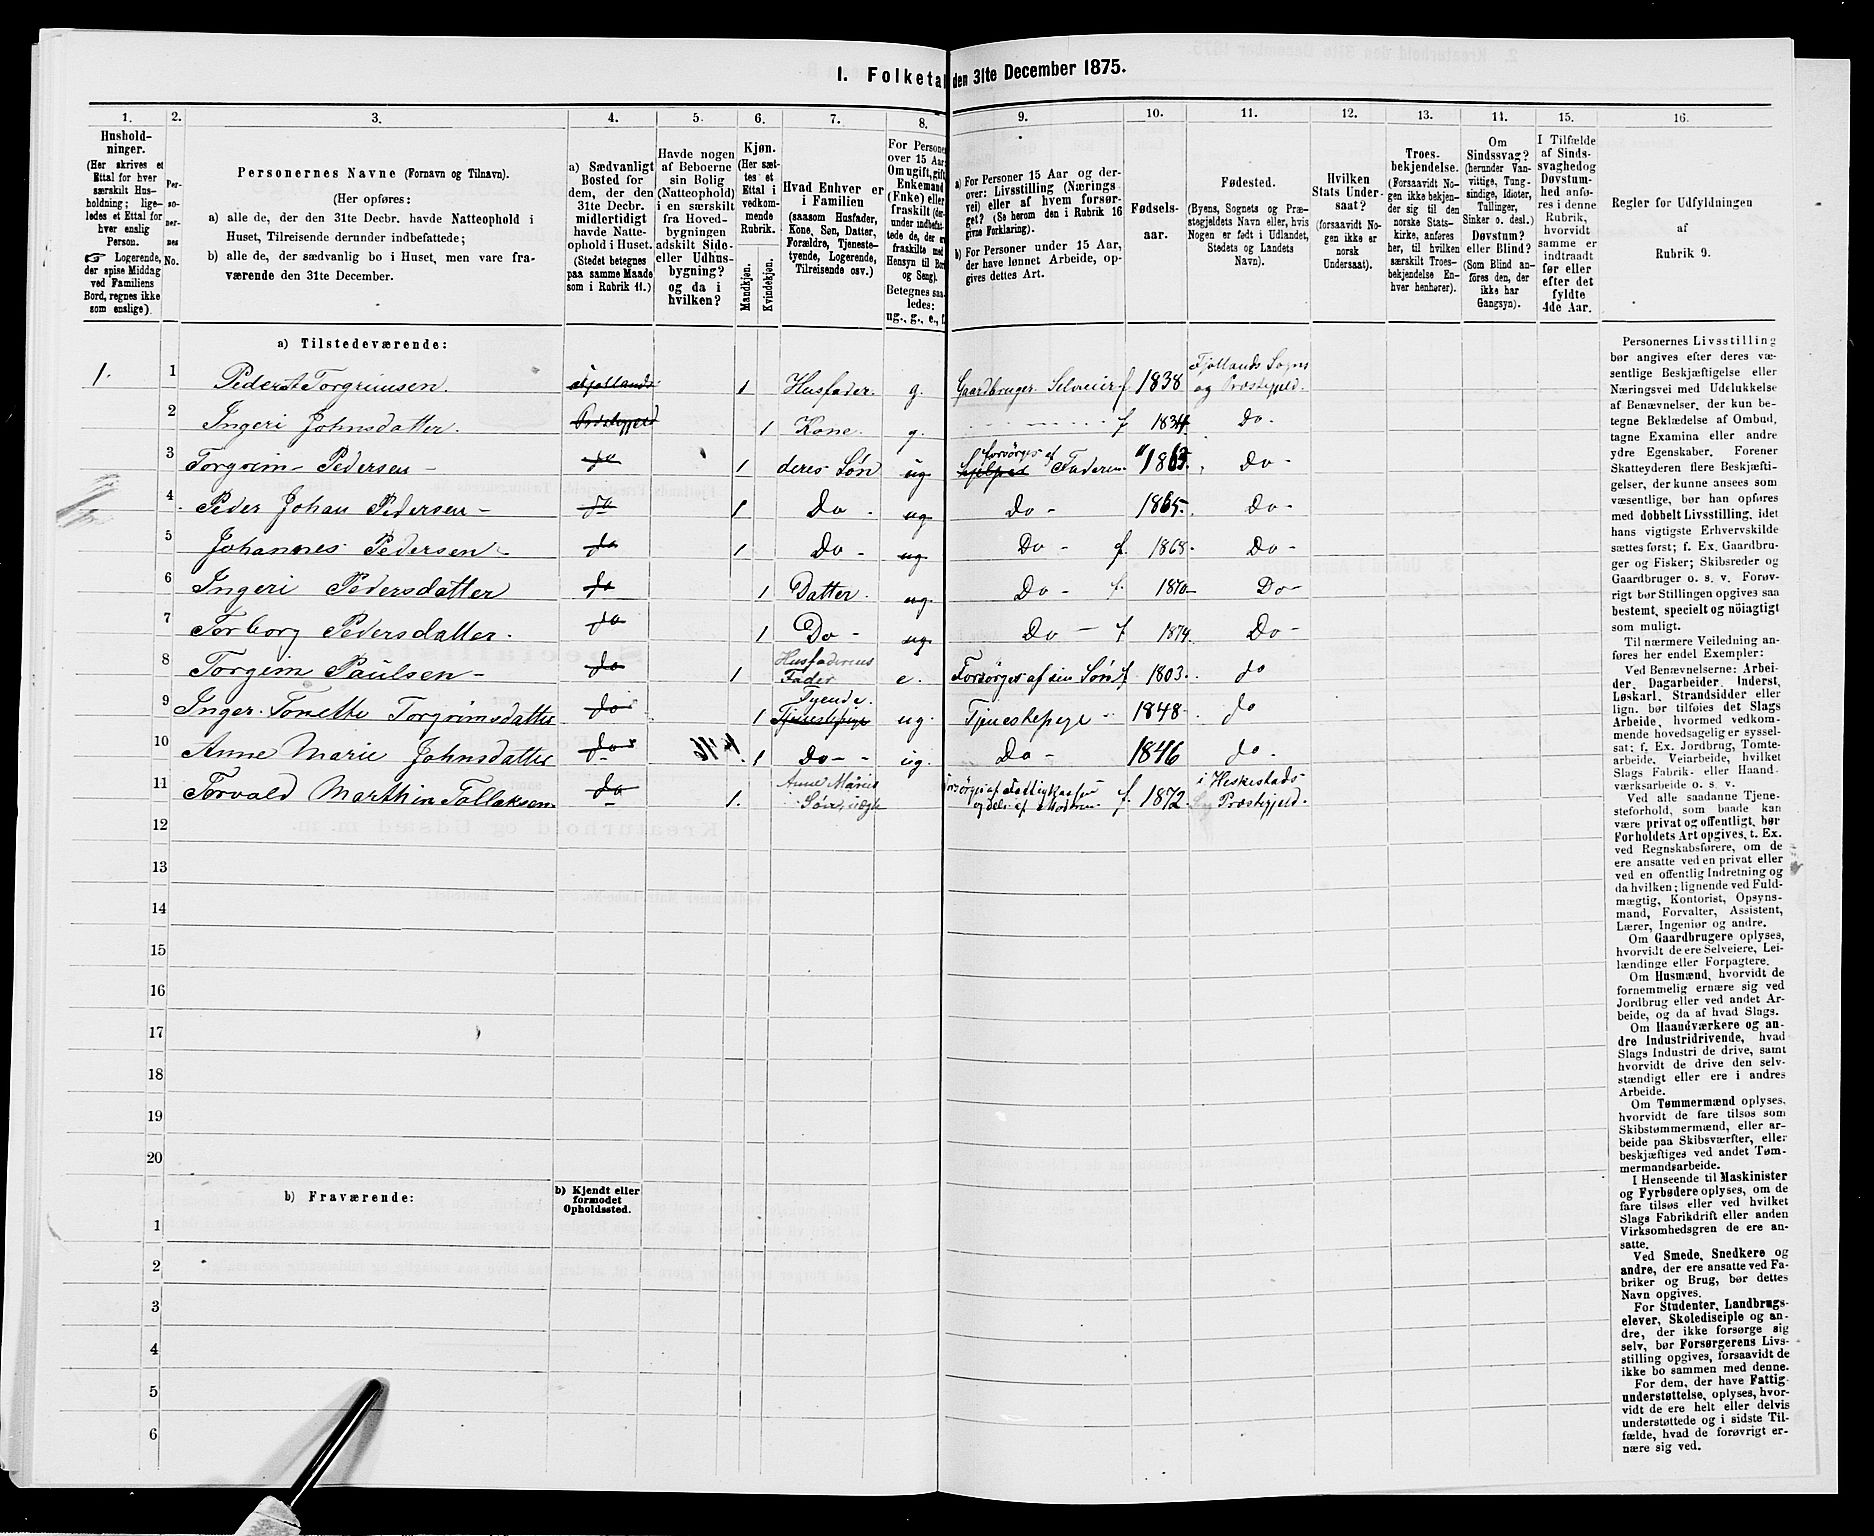 1. Folketal den 31te December 1875.
1. 2. 3. 4. 5. 6. 7. 8. 9. 10. 11. 12. 13. 14. 15. 16.
Hushold-
ninger.
(Her skrives et
Ettal for hver
særskilt Hus-
holdning; lige-
ledes et Ettal for
hver enslig
Person.
☞ Logerende,
der spise Middag
ved Familiens
Bord, regnes ikke
som enslige).
Per-
so-
ner-
nes
No.
Personernes Navne (Fornavn og Tilnavn).
(Her opføres:
a) alle de, der den 31te Decbr. havde Natteophold i
Huset, Tilreisende derunder indbefattede;
b) alle de, der sædvanlig bo i Huset, men vare fra-
værende den 31te December.
a) Sædvanligt
Bosted for
dem, der den
31te Decbr.
midlertidigt
havde Natte-
ophold i Huset.
(Stedet betegnes
paa samme Maade
som i Rubrik 11.)
Havde nogen
af Beboerne
sin Bolig
(Natteophold)
i en særskilt
fra Hoved-
bygningen
adskilt Side-
eller Udhus-
bygning?
og da i
hvilken?
Kjøn.
(Her sæt-
tes et
Ettal i
vedkom-
mende
Rubrik.
Mandkjøn.
Kvindekjøn.
Hvad Enhver er
i Familien
(saasom Husfader,
Kone, Søn, Datter,
Forældre, Tjeneste-
tyende, Logerende,
Tilreisende osv.)
For Personer
over 15 Aar:
Om ugift, gift,
Enkemand
(Enke) eller
fraskilt (der-
under indbefat-
tede de, der er
fraskilte med
Hensyn til Bord
og Seng).
Betegnes saa-
ledes:
ug., g., e., f.
a) For Personer 15 Aar og der-
over: Livsstilling (Nærings-
vei) eller af hvem forsør-
get? (Se herom den i Rubrik 16
givne Forklaring).
b) For Personer under 15 Aar,
der have lønnet Arbeide, op-
gives dettes Art.
Fødsels-
aar.
Fødested.
(Byens, Sognets og Præ-
stegjeldets Navn eller, hvis
Nogen er født i Udlandet,
Stedets og Landets
Navn).
Hvilken
Stats Under-
saat?
(forsaavidt No-
gen ikke er
norsk
Undersaat).
Troes-
bekjendelse.
(Forsaavidt No-
gen ikke bekjen-
der sig til den
norske Stats-
kirke, anføres
her, til hvilken
særskilt Troes-
bekjendelse En-
hver henhører).
Om
Sindssvag?
(herunder Van-
vittige, Tung-
sindige, Idioter,
Tullinger,
Sinker o. desl.)
Døvstum?
eller Blind?
(Som Blind an-
føres den, der
ikke har
Gangsyn).
I Tilfælde
af Sinds-
svaghed og
Døvstum-
hed anfø-
res i denne
Rubrik,
hvorvidt
samme er
indtraadt
før eller
efter det
fyldte
4de Aar.
Regler for Udfyldningen
af
Rubrik 9.
a) Tilstedeværende:
1. 1 Peder Torgrimsen. Fjotlands 1 Husfader. g. Gaardbruger Selveier f 1838 Fjotlands Sogn og Præstegjeld.
2 Ingeri Johnsdatter. Præstegjeld 1 Kone. g. f 1834 Do.
3 Torgrim Pedersen - do 1 deres Søn ug forsørges af Faderen 1863. Do -
4 Peder Johan Pedersen - do 1 Do - ug Do - 1865. Do -
5 Johannes Pedersen - do 1 Do - ug Do - f. 1868. Do -
6 Ingeri Pedersdatter do 1 Datter. ug. Do - f. 1870 - Do -
7 Torborg Pedersdatter. do 1 Do - ug. Do - f 1874. Do -
8 Torgrim Paulsen - do 1 Husfaderens Fader e. Forsørges af sin Søn f 1803. do
9 Inger Tonette Torgrimsdatter do 1 Tyende. Tjenestepige ug. Tjenestepige - 1848 do
10 Anne Marie Johnsdatter do 1 Do - - ug. Do - 1846 do -
11 Torvald Marthin Tollaksen do 1. Anne Maries Søn, uægte Forsørges af Fattigkassen og dels af Moderen f. 1872. i Heskestads Præstegjeld.
12
13
14
15
16
17
18
19
20
b) Fraværende:
b) Kjendt eller
formodet
Opholdssted.
1
2
3
4
5
6
Personernes Livsstilling
bør angives efter deres væ-
sentlige Beskjæftigelse eller
Næringsvei med Udelukkelse
af Benævnelser, der kun be-
tegne Beklædelse af Ombud,
tagne Examina eller andre
ydre Egenskaber. Forener
Skatteyderen flere Beskjæfti-
gelser, der kunne ansees som
væsentlige, bør han opføres
med dobbelt Livsstilling, idet
hans vigtigste Erhvervskilde
sættes først; f. Ex. Gaardbru-
ger og Fisker; Skibsreder og
Gaardbruger o. s. v. Forøv-
rigt bør Stillingen opgives saa
bestemt, specielt og nöiagtigt
som muligt.
Til nærmere Veiledning an-
føres her endel Exempler:
Ved Benævnelserne: Arbei-
der, Dagarbeider, Inderst,
Løskarl, Strandsidder eller
lign. bør tilføies det Slags
Arbeide, hvormed vedkom-
mende hovedsagelig er syssel-
sat; f. Ex. Jordbrug, Tomte-
arbeide, Veiarbeide, hvilket
Slags Fabrik- eller Haand-
værksarbeide o. s. v.
Ved alle saadanne Tjene-
steforhold, som baade kan
være privat og offentligt, bør
Forholdets Art opgives, t. Ex.
ved Regnskabsførere, om de
ere ansatte ved en privat eller
ved en offentlig Indretning og
da hvilken; lignende ved Fuld-
mægtig, Kontorist, Opsyns-
mand, Forvalter, Assistent,
Lærer, Ingeniør og andre.
Om Gaardbrugere oplyses,
hvorvidt de ere Selveiere, Lei-
lændinge eller Forpagtere.
Om Husmænd, hvorvidt de
fornemmelig ernære sig ved
Jordbrug eller ved andet Ar-
beide, og da af hvad Slags.
Om Haandværkere og an-
dre Industridrivende, hvad
Slags Industri de drive, samt
hvorvidt de drive den selv-
stændigt eller ere i andres
Arbeide.
Om Tømmermænd oplyses,
hvorvidt de fare tilsøs som
Skibstømmermænd, eller ar-
beide paa Skibsværfter, eller
beskjæftiges ved andet Tøm-
mermandsarbeide.
I Henseende til Maskinister
og Fyrbødere oplyses, om de
fare tilsøs eller ved hvilket
Slags Fabrikdrift eller anden
Virksomhedsgren de ere an-
satte.
Ved Smede, Snedkere og
andre, der ere ansatte ved Fa-
briker og Brug, bør dettes
Navn opgives.
For Studenter, Landbrugs-
elever, Skoledisciple og an-
dre, der ikke forsørge sig
selv, bør Forsørgerens Livs-
stilling opgives, forsaavidt de
ikke bo sammen med denne.
For dem, der have Fattig-
understøttelse, oplyses, hvor-
vidt de ere helt eller delvis
understøttede og i sidste Til-
fælde, hvad de forøvrigt er-
nære sig ved.